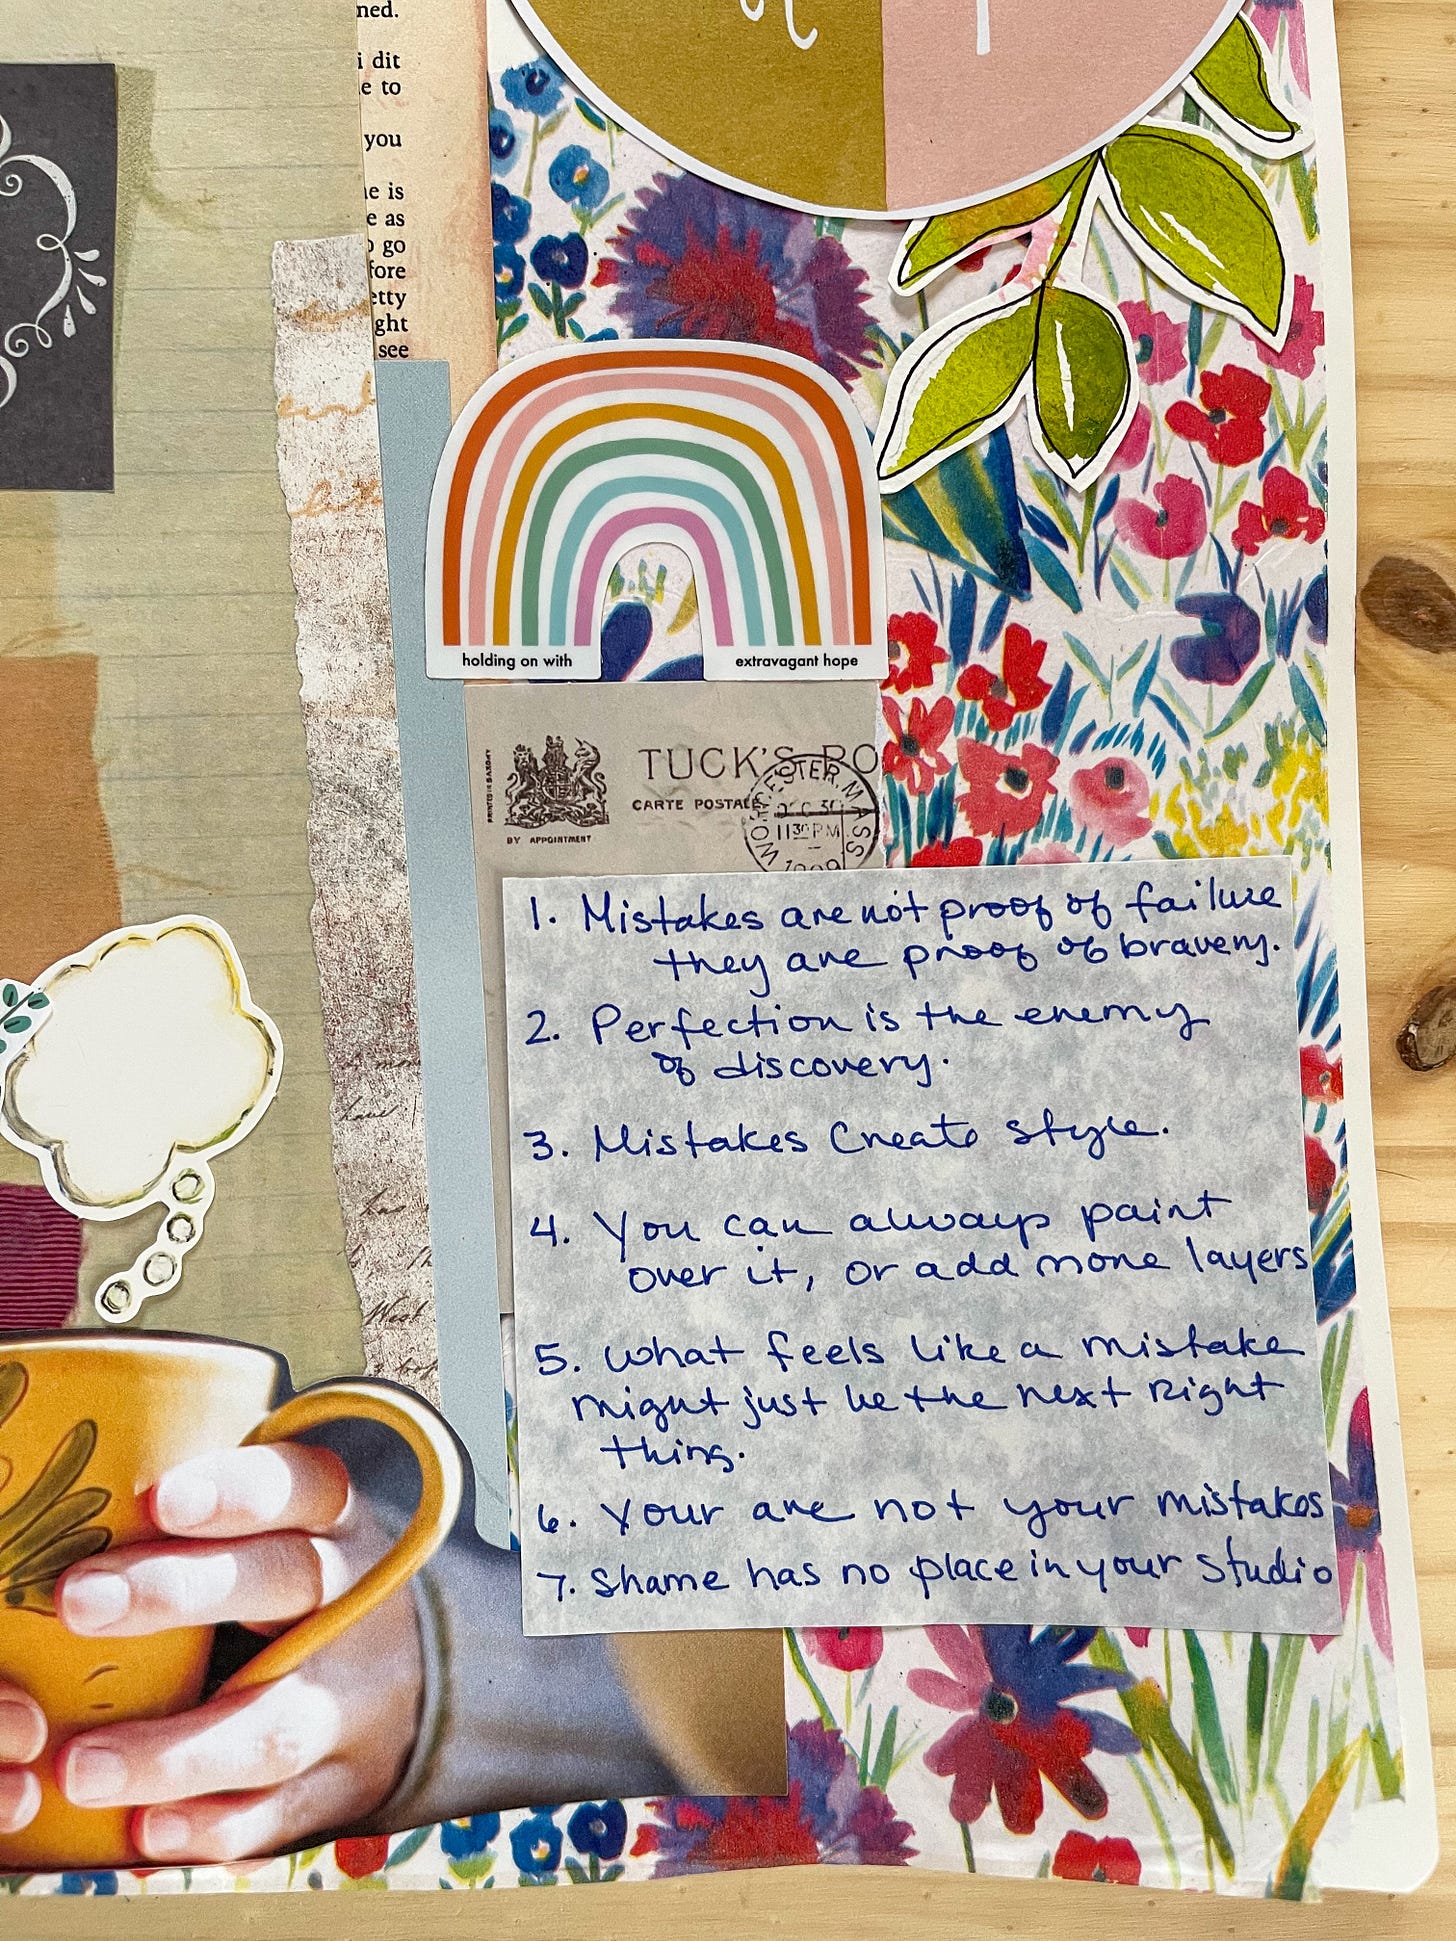 ned.
i dit
e to
you
e is
e as
o go
fore
etty
ght
see
holding on with
extravagant hope
PRINTED IN SAXONY
BY APPOINTMENT
TUCK'S PO
CARTE POSTALE
WORCESTER, MASS
DEC 30
11 30 PM
1909
1. Mistakes are not proof of failure
they are proof of bravery.
2. Perfection is the enemy
of discovery.
3. Mistakes Create style.
4. You can always paint
over it, or add more layers
5. What feels like a mistake
might just be the next Right
thing.
6. Your are not your mistakes
7. Shame has no place in your studio